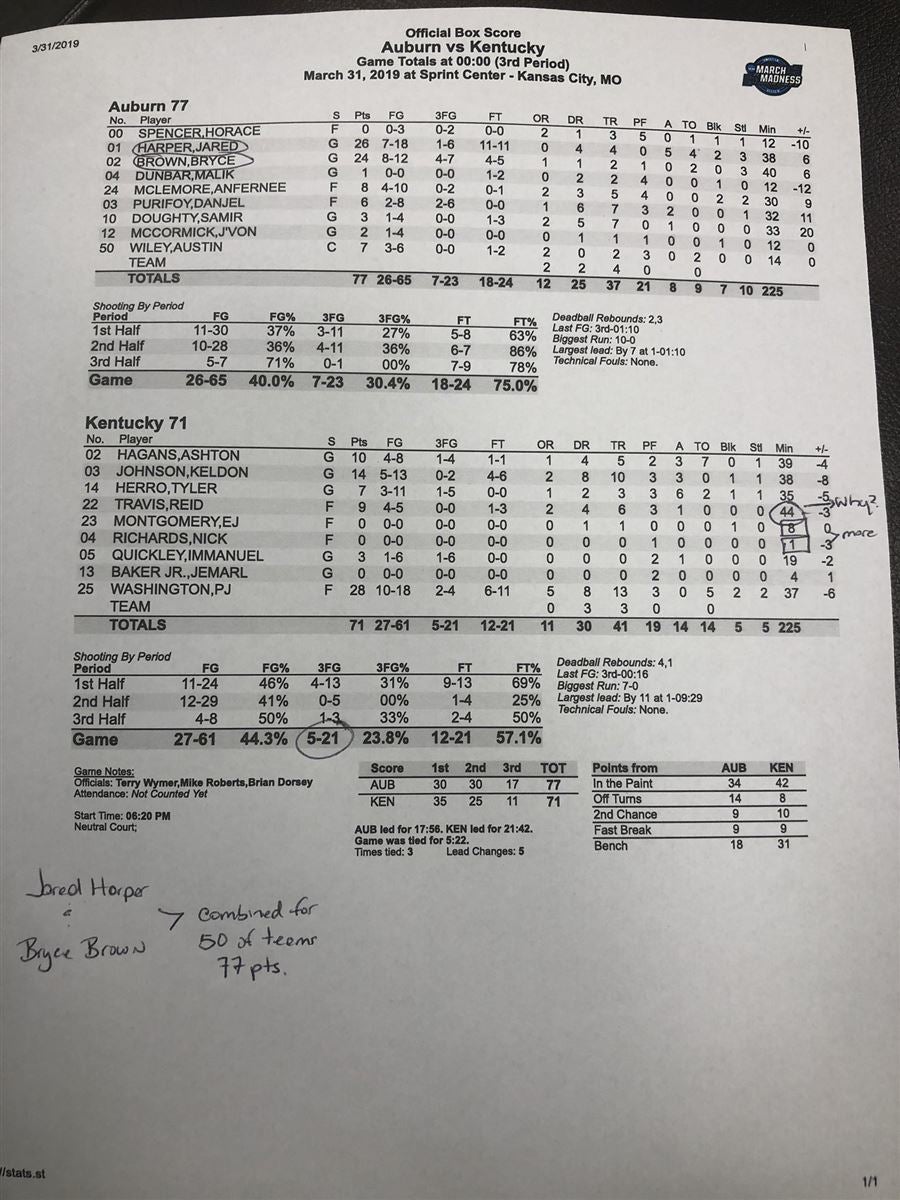 3/31/2019
Official Box Score
Auburn vs Kentucky
Game Totals at 00:00 (3rd Period)
March 31, 2019 at Sprint Center - Kansas City, MO
MARCH MADNESS
Auburn 77
No. Player S Pts FG 3FG FT OR DR TR PF A TO Blk Stl Min +/-
00 SPENCER,HORACE F 0 0-3 0-2 0-0 2 1 3 5 0 1 1 1 12 -10
01 HARPER,JARED G 26 7-18 1-6 11-11 0 4 4 0 5 4 2 3 38 6
02 BROWN,BRYCE G 24 8-12 4-7 4-5 1 1 2 1 0 2 0 3 40 6
04 DUNBAR,MALIK G 1 0-0 0-0 1-2 0 2 2 4 0 0 1 0 12 -12
24 MCLEMORE,ANFERNEE F 8 4-10 0-2 0-1 2 3 5 4 0 0 2 2 30 9
03 PURIFOY,DANJEL F 6 2-8 2-6 0-0 1 6 7 3 2 0 0 1 32 11
10 DOUGHTY,SAMIR G 3 1-4 0-0 1-3 2 5 7 0 1 0 0 0 33 20
12 MCCORMICK,J'VON G 2 1-4 0-0 0-0 0 1 1 1 0 0 1 0 12 0
50 WILEY,AUSTIN C 7 3-6 0-0 1-2 2 0 2 3 0 2 0 0 14 0
TEAM 2 2 4 0 0
TOTALS 77 26-65 7-23 18-24 12 25 37 21 8 9 7 10 225
Shooting By Period
Period FG FG% 3FG 3FG% FT FT%
1st Half 11-30 37% 3-11 27% 5-8 63%
2nd Half 10-28 36% 4-11 36% 6-7 86%
3rd Half 5-7 71% 0-1 00% 7-9 78%
Game 26-65 40.0% 7-23 30.4% 18-24 75.0%
Deadball Rebounds: 2,3
Last FG: 3rd-01:10
Biggest Run: 10-0
Largest lead: By 7 at 1-01:10
Technical Fouls: None.
Kentucky 71
No. Player S Pts FG 3FG FT OR DR TR PF A TO Blk Stl Min +/-
02 HAGANS,ASHTON G 10 4-8 1-4 1-1 1 4 5 2 3 7 0 1 39 -4
03 JOHNSON,KELDON G 14 5-13 0-2 4-6 2 8 10 3 3 0 1 1 38 -8
14 HERRO,TYLER G 7 3-11 1-5 0-0 1 2 3 3 6 2 1 1 35 -5
22 TRAVIS,REID F 9 4-5 0-0 1-3 2 4 6 3 1 0 0 0 44 -3 Why?
23 MONTGOMERY,EJ F 0 0-0 0-0 0-0 0 1 1 0 0 0 1 0 8 0
04 RICHARDS,NICK F 0 0-0 0-0 0-0 0 0 0 1 0 0 0 0 1 -3 more
05 QUICKLEY,IMMANUEL G 3 1-6 1-6 0-0 0 0 0 2 1 0 0 0 19 -2
13 BAKER JR.,JEMARL G 0 0-0 0-0 0-0 0 0 0 2 0 0 0 0 4 1
25 WASHINGTON,PJ F 28 10-18 2-4 6-11 5 8 13 3 0 5 2 2 37 -6
TEAM 0 3 3 0 0
TOTALS 71 27-61 5-21 12-21 11 30 41 19 14 14 5 5 225
Shooting By Period
Period FG FG% 3FG 3FG% FT FT%
1st Half 11-24 46% 4-13 31% 9-13 69%
2nd Half 12-29 41% 0-5 00% 1-4 25%
3rd Half 4-8 50% 1-3 33% 2-4 50%
Game 27-61 44.3% 5-21 23.8% 12-21 57.1%
Deadball Rebounds: 4,1
Last FG: 3rd-00:16
Biggest Run: 7-0
Largest lead: By 11 at 1-09:29
Technical Fouls: None.
Game Notes:
Officials: Terry Wymer,Mike Roberts,Brian Dorsey
Attendance: Not Counted Yet
Start Time: 06:20 PM
Neutral Court;
Score 1st 2nd 3rd TOT
AUB 30 30 17 77
KEN 35 25 11 71
AUB led for 17:56. KEN led for 21:42.
Game was tied for 5:22.
Times tied: 3 Lead Changes: 5
Points from AUB KEN
In the Paint 34 42
Off Turns 14 8
2nd Chance 9 10
Fast Break 9 9
Bench 18 31
Jared Harper
&
Bryce Brown
combined for
50 of teams
77 pts.
//stats.st
1/1